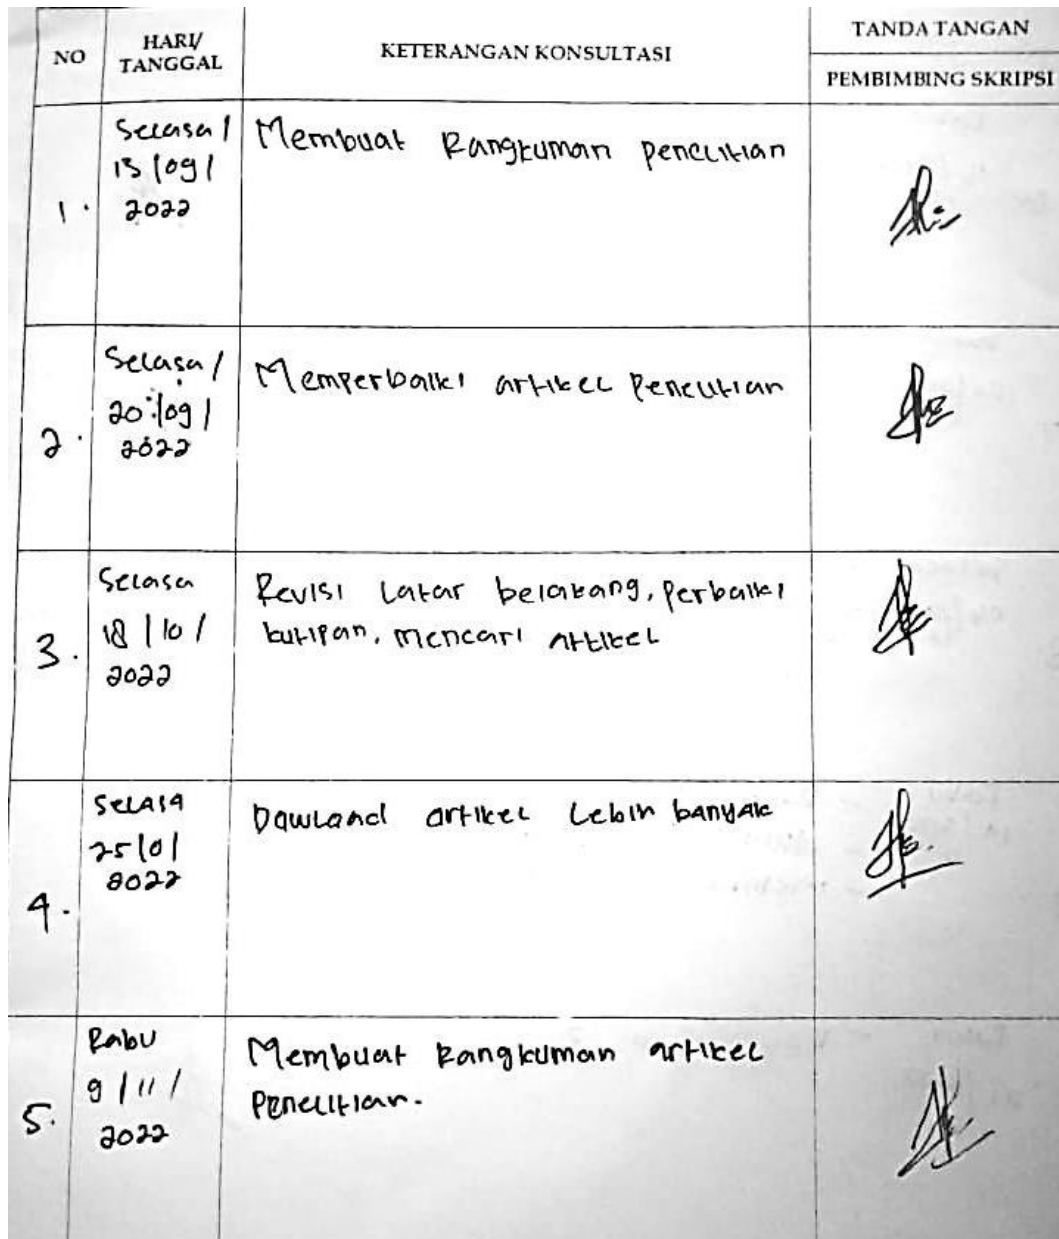 NO
HARI/
TANGGAL
KETERANGAN KONSULTASI
TANDA TANGAN
PEMBIMBING SKRIPSI
1.
Selasa /
13 /09/
2022
Membuat Rangkuman penelitian
2.
Selasa /
20 /09 /
2022
Memperbaiki artikel Penelitian
3.
Selasa
18 / 10 /
2022
Revisi Latar belakang, Perbaiki
kutipan, mencari Artikel
4.
SeLASA
25 /0 /
2022
Dawload artikel Lebih banyak
5.
Rabu
9 / 11 /
2022
Membuat Rangkuman artikel
Penelitian.